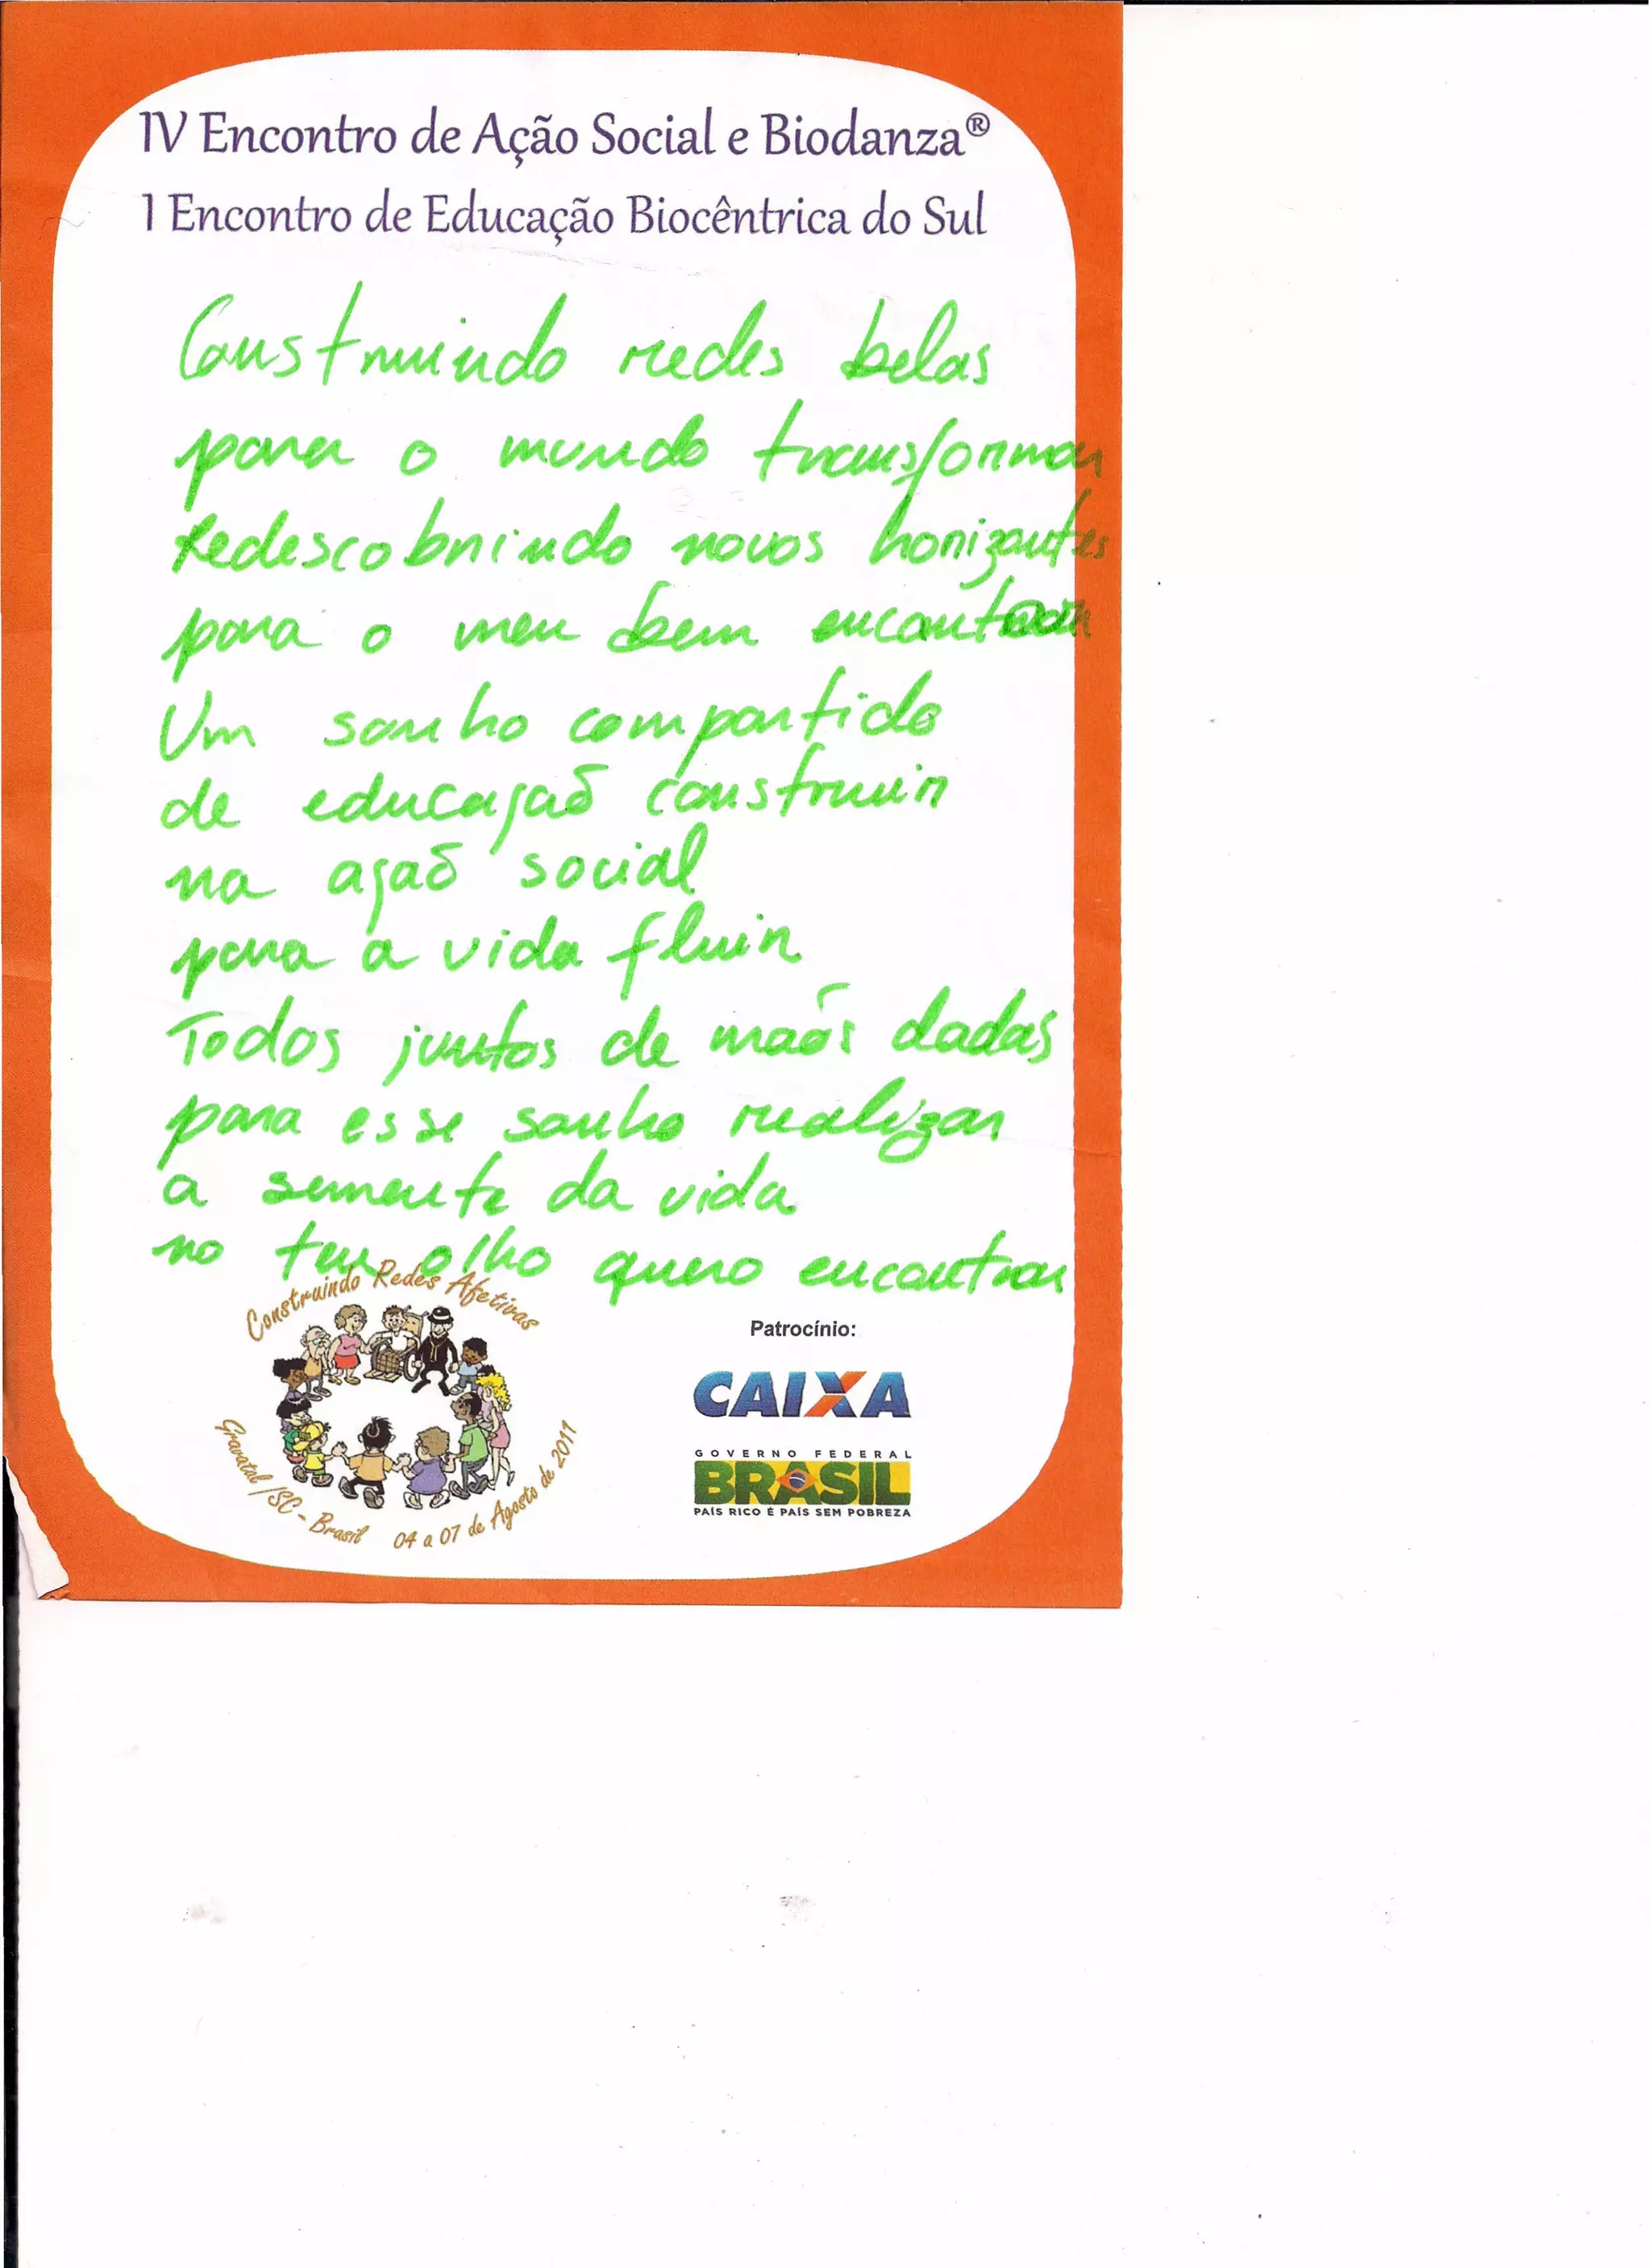 IV Encontro de Ação Social e Biodanza®
I Encontro de Educação Biocêntrica do Sul
Construindo redes belas
para o mundo transformar
Redescobrindo novos horizontes
para o meu bem encantar
Um sonho compartido
de educaçaõ construir
na açaõ social
para a vida fluir
Todos juntos de maõs dadas
para esse sonho realizar
a semente da vida
no teu olho quero encontrar
Construindo Redes Afetivas
Gravatal/SC - Brasil 04 a 07 de Agosto de 2011
Patrocínio:
CAIXA
GOVERNO FEDERAL
BRASIL
PAÍS RICO É PAÍS SEM POBREZA